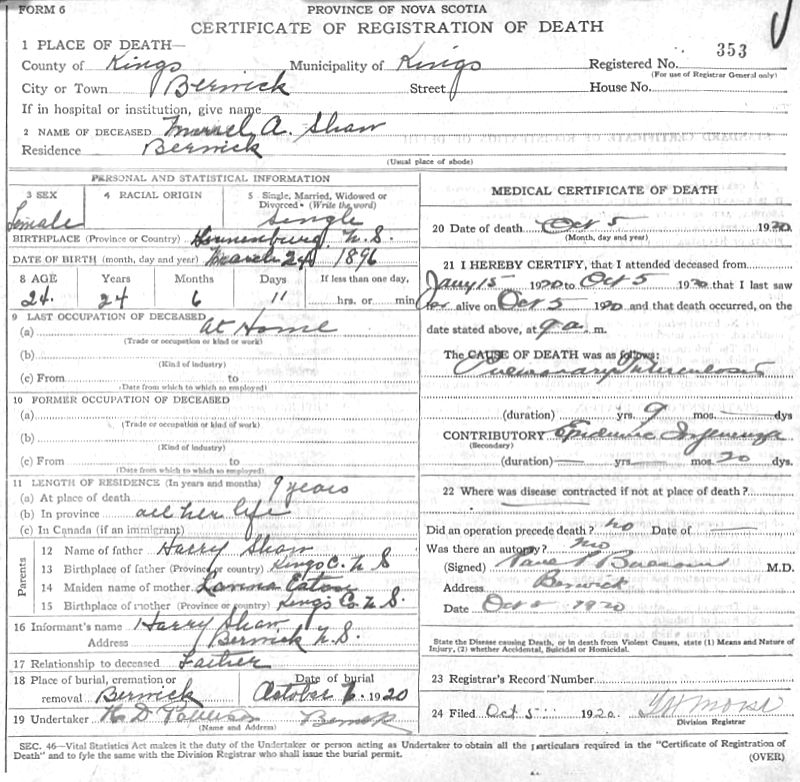 FORM 6
PROVINCE OF NOVA SCOTIA
CERTIFICATE OF REGISTRATION OF DEATH
1 PLACE OF DEATH—
County of Kings Municipality of Kings Registered No. 353
(For use of Registrar General only)
City or Town Berwick Street House No.
If in hospital or institution, give name
2 NAME OF DECEASED A. Shaw
Residence Berwick
(Usual place of abode)
PERSONAL AND STATISTICAL INFORMATION
3 SEX
Female
4 RACIAL ORIGIN
5 Single, Married, Widowed or
Divorced (Write the word)
Single
BIRTHPLACE (Province or Country) Lunenburg, N.S.
DATE OF BIRTH (month, day and year) March 24 1896
8 AGE Years Months Days If less than one day,
24 24 6 11 hrs. or min
9 LAST OCCUPATION OF DECEASED
(a) At Home
(Trade or occupation or kind or work)
(b)
(Kind of industry)
(c) From to
(Date from which to which so employed)
10 FORMER OCCUPATION OF DECEASED
(a)
(Trade or occupation or kind of work)
(b)
(Kind of industry)
(c) From to
(Date from which to which so employed)
11 LENGTH OF RESIDENCE (In years and months)
(a) At place of death 9 years
(b) In province all her life
(c) In Canada (if an immigrant)
Parents
12 Name of father Harry Shaw
13 Birthplace of father (Province or country) Kings C. N S
14 Maiden name of mother Eaton
15 Birthplace of mother (Province or country) Kings Co. N.S.
16 Informant's name Harry Shaw
Address Berwick N.S.
17 Relationship to deceased Father
18 Place of burial, cremation or Date of burial
removal Berwick October 1920
19 Undertaker Berwick
(Name and Address)
MEDICAL CERTIFICATE OF DEATH
20 Date of death Oct 5 1920
(Month, day and year)
21 I HEREBY CERTIFY, that I attended deceased from
Jany 15 1920 to Oct 5 1920 that I last saw
her alive on Oct 5 1920 and that death occurred, on
the date stated above, at 9 a. m.
The CAUSE OF DEATH was as follows:
Pulmonary Tuberculosis
(duration) yrs. 9 mos. dys
CONTRIBUTORY Epidemic Influenza
(Secondary)
(duration) yrs mos. 20 dys.
22 Where was disease contracted if not at place of death?
Did an operation precede death? no Date of
Was there an autopsy? no
(Signed) M.D.
Address Berwick
Date Oct 1920
State the Disease causing Death, or in death from Violent Causes, state (1) Means and Nature of
Injury, (2) whether Accidental, Suicidal or Homicidal.
23 Registrar's Record Number
24 Filed Oct 5 1920
Division Registrar
SEC. 46—Vital Statistics Act makes it the duty of the Undertaker or person acting as Undertaker to obtain all the particulars required in the "Certificate of Registration of
Death" and to fyle the same with the Division Registrar who shall issue the burial permit. (OVER)